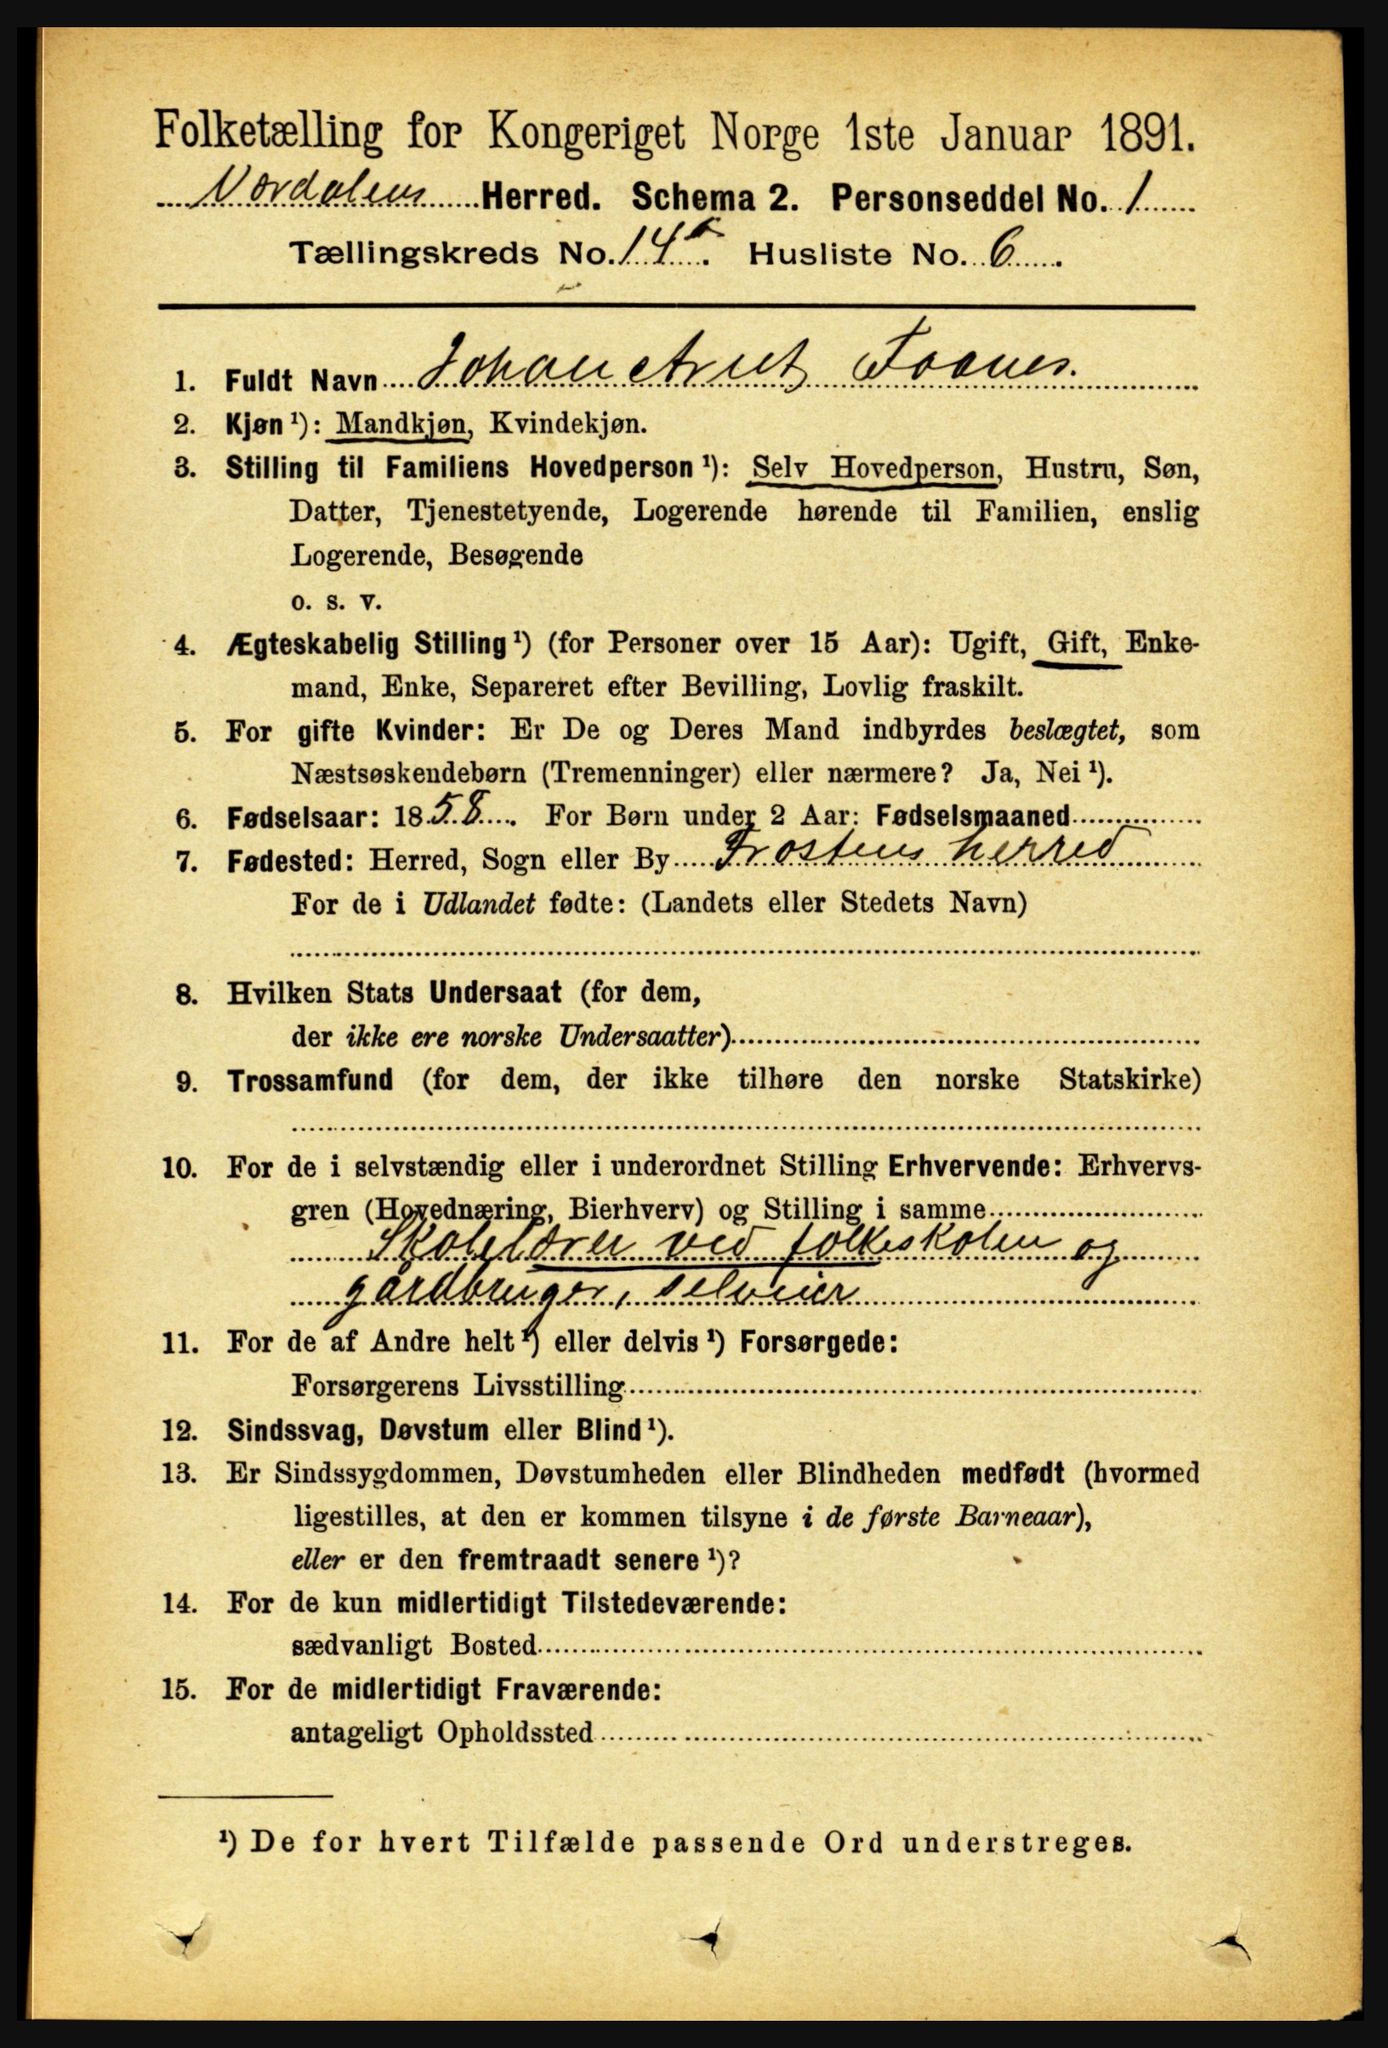 Folketælling for Kongeriget Norge 1ste Januar 1891.
Værdalens Herred. Schema 2. Personseddel No. 1
Tællingskreds No. 14 Husliste No. 6.
1. Fuldt Navn Johan Arnt Faanes.
2. Kjøn ¹): Mandkjøn, Kvindekjøn.
3. Stilling til Familiens Hovedperson ¹): Selv Hovedperson, Hustru, Søn,
Datter, Tjenestetyende, Logerende hørende til Familien, enslig
Logerende, Besøgende
o. s. v.
4. Ægteskabelig Stilling ¹) (for Personer over 15 Aar): Ugift, Gift, Enke-
mand, Enke, Separeret efter Bevilling, Lovlig fraskilt.
5. For gifte Kvinder: Er De og Deres Mand indbyrdes beslægtet, som
Næstsøskendebørn (Tremenninger) eller nærmere? Ja, Nei ¹).
6. Fødselsaar: 1858. For Børn under 2 Aar: Fødselsmaaned
7. Fødested: Herred, Sogn eller By Frostens herred
For de i Udlandet fødte: (Landets eller Stedets Navn)
8. Hvilken Stats Undersaat (for dem,
der ikke ere norske Undersaatter)
9. Trossamfund (for dem, der ikke tilhøre den norske Statskirke)
10. For de i selvstændig eller i underordnet Stilling Erhvervende: Erhvervs-
gren (Hovednæring, Bierhverv) og Stilling i samme
Skolelærer ved folkeskolen og
gårdbruger, selveier
11. For de af Andre helt ¹) eller delvis ¹) Forsørgede:
Forsørgerens Livsstilling
12. Sindssvag, Døvstum eller Blind ¹).
13. Er Sindssygdommen, Døvstumheden eller Blindheden medfødt (hvormed
ligestilles, at den er kommen tilsyne i de første Barneaar),
eller er den fremtraadt senere ¹)?
14. For de kun midlertidigt Tilstedeværende:
sædvanligt Bosted
15. For de midlertidigt Fraværende:
antageligt Opholdssted
¹) De for hvert Tilfælde passende Ord understreges.